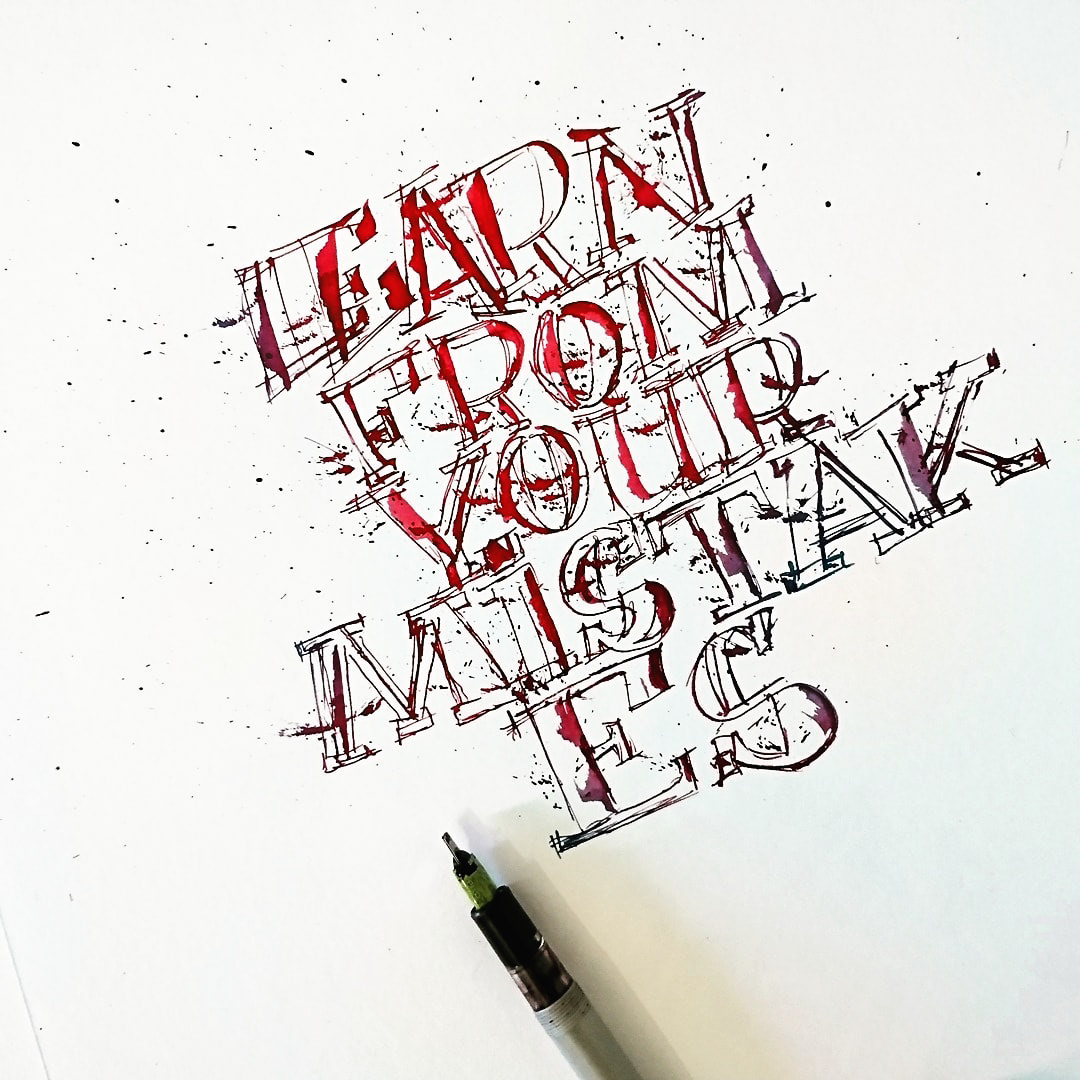 LEARN
FROM
YOUR
MISTAK
ES